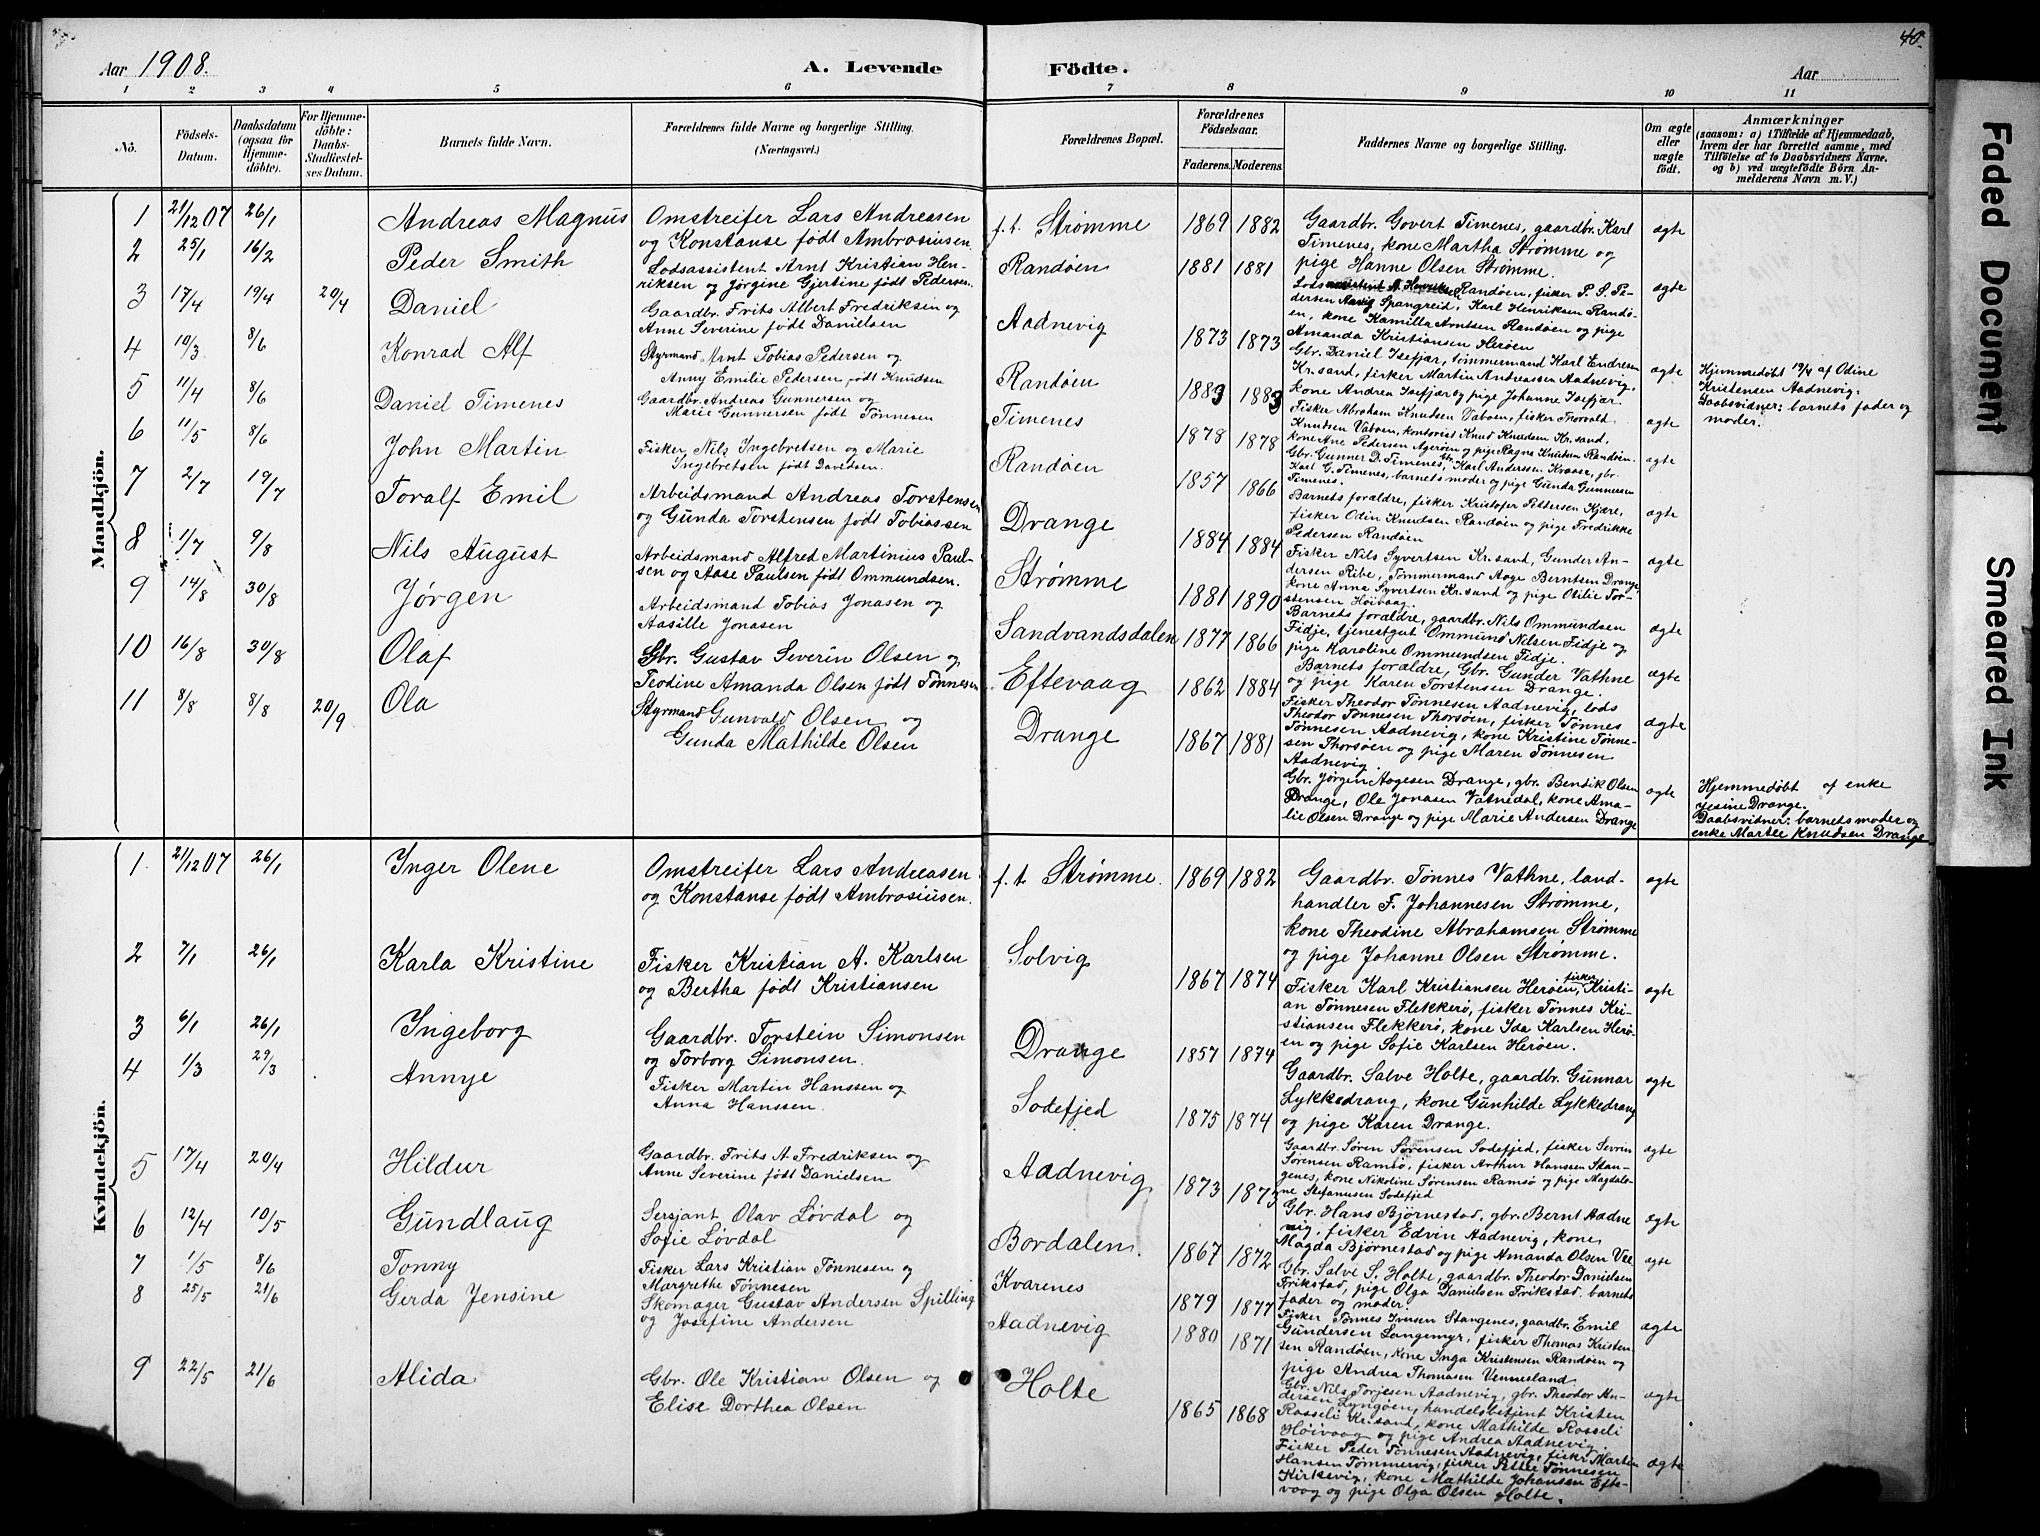 Aar 1908.
A. Levende
Födte.
Aar
40.
1 2 3 4 5 6 7 8 9 10 11
No.
Födsels-Datum.
Daabsdatum (ogsaa for Hjemmedöbte).
For Hjemmedöbte: Daabs-Stadfæstelses Datum.
Barnets fulde Navn.
Forældrenes fulde Navne og borgerlige Stilling.
(Næringsvei.)
Forældrenes Bopæl.
Forældrenes Födselsaar.
Faderens. Moderens.
Faddernes Navne og borgerlige Stilling.
Om ægte eller uægte födt.
Anmærkninger
(saasom: a) i Tilfælde af Hjemmedaab,
hvem der har forrettet samme, med
Tilföielse af to Daabsvidners Navne.
og b) ved uægtefödte Börn Anmelderens Navn m. V.)
Mandkjön.
1 21/12 07 26/1 Andreas Magnus Omstreifer Lars Andreasen
og Konstanse født Ambrosiusen. f. t. Strømme 1869 1882 Gaardbr. Govert Timenes, gaardbr. Karl
Timenes, kone Martha Strømme og
pige Hanne Olsen Strømme. ægte
2 25/1 16/2 Peder Smith Lodsassistent Arnt Kristian Hen-
riksen og Jørgine Gjertine født Pedersen. Randøen 1881 1881 Randøen, fisker P. S. Pe-
dersen Spangreid, Karl Henriksen Randø-
en, kone Kamilla Arntsen Randøen og pige
Amanda Kristiansen Herøen ægte
3 17/4 19/4 20/4 Daniel Gaardbr. Frits Albert Fredriksen og
Anne Severine født Danielsen Aadnevig 1873 1873 Gbr. Daniel Isefjær, tømmermand Karl Endresen
Kr.sand, fisker Martin Andreassen Aadnevig,
kone Andrea Isefjær og pige Johanne Isefjær. ægte Hjemmedøbt 19/4 af Odine
Kristensen Aadnevig.
Daabsvidner: barnets fader og
moder.
4 10/3 8/6 Konrad Alf Styrmand Arnt Tobias Pedersen og
Anny Emilie Pedersen født Knudsen Randøen 1883 1883 Fisker Abraham Knudsen Vaboen, fisker Thorvald
Knudsen Vaboen, kontorist Knud Knudsen Kr.sand,
kone Ane Pedersen Agerøen og pige Ragna Knutsen Randøen. ægte
5 11/4 8/6 Daniel Timenes Gaardbr. Andreas Gunnersen og
Marie Gunnersen født Tønnesen Timenes 1878 1878 Gbr. Gunner D. Timenes, gbr. Karl Andersen Kvaase, gbr.
Karl G. Timenes, barnets moder og pige Gunda Gunnersen
Timenes. ægte
6 11/5 8/6 John Martin Fisker Nils Ingebretsen og Marie
Ingebretsen født Davidsen. Randøen 1857 1866 Barnets forældre, fisker Kristofer Pettersen Kjære,
fisker Odin Knudsen Randøen og pige Fredrikke
Pedersen Randøen ægte
7 2/7 19/7 Toralf Emil Arbeidsmand Andreas Torstensen
og Gunda Torstensen født Tobiassen Drange 1884 1884 Fisker Nils Syvertsen Kr.sand, Gunder An-
dersen Ribe, Tømmermand Aage Berntsen Drange
kone Anna Syvertsen Kr.sand og pige Otilie Tor-
stensen Høivaag. ægte
8 1/7 9/8 Nils August Arbeidsmand Alfred Martinius Paul-
sen og Aase Paulsen født Ommundsen. Strømme 1881 1890 Barnets forældre, gaardbr. Nils Ommundsen
Fidje, tjenestgut Ommund Nilsen Fidje og
pige Karoline Ommundsen Fidje. ægte
9 14/8 30/8 Jørgen Arbeidsmand Tobias Jonasen og
Aasille Jonasen Sandvandsdalen 1877 1866 Barnets forældre, Gbr. Gunder Vathne
og pige Karen Torstensen Drange. ægte
10 16/8 30/8 Olaf Gbr. Gustav Severin Olsen og
Teodine Amanda Olsen født Tønnesen Eftevaag 1862 1884 Fisker Theodor Tønnesen Aadnevig, lods
Theodor Tønnesen Thorsøen, fisker Tønnes
Tønnesen Aadnevig, kone Kristine Tønne-
sen Thorsøen og pige Maren Tønnesen
Aadnevig. ægte
11 8/8 8/8 20/9 Ola Styrmand Gunvald Olsen og
Gunda Mathilde Olsen Drange 1867 1881 Gbr. Jørgen Aagesen Drange, gbr. Bendik Olsen
Drange, Ole Jonasen Vatnedal, kone Ama-
lie Olsen Drange og pige Marie Andersen Drange ægte Hjemmedøbt af enke
Jesine Drange.
Daabsvidner: barnets moder og
enke Marte Knudsen Drange
Kvindekjön.
1. 21/12 07 26/1 Inger Olene Omstreifer Lars Andreasen
og Konstanse født Ambrosiusen. f. t. Strømme. 1869 1882 Gaardbr. Tønnes Vathne, land-
handler F. Johannesen Strømme,
kone Theodine Abrahamsen Strømme
og pige Johanne Olsen Strømme. ægte
2 7/1 26/1 Karla Kristine Fisker Kristian A. Karlsen
og Bertha født Kristiansen Solvig 1867 1874 Fisker Karl Kristiansen Herøen, fisker Kristi-
an Tønnesen Flekkerø, fisker Tønnes Kri-
stiansen Flekkerø, kone Ida Karlsen Herø-
en og pige Sofie Karlsen Herøen. ægte
3 6/1 26/1 Ingeborg Gaardbr. Torstein Simonsen
og Torborg Simonsen. Drange 1857 1874 Gaardbr. Salve Holte, gaardbr. Gunnar
Lykkedrang, kone Gunhilde Lykkedrang
og pige Karen Drange. ægte
4 1/3 29/3 Annye Fisker Martin Hanssen og
Anna Hanssen. Sodefjed 1875 1874 Gaardbr. Søren Sørensen Sodefjed, fisker Sevrin
Sørensen Ramsø, fisker Arthur Hanssen Stan-
genes, kone Nikoline Sørensen Ramsø og pige Magdale-
ne Stefanusen Sodefjed ægte
5 17/4 20/4 Hildur Gaardbr. Frits A. Fredriksen og
Anne Severine født Danielsen Aadnevig 1873 1873 Gbr. Hans Bjørnestad, gbr. Bernt Aadne
vig, fisker Edvin Aadnevig, kone
Magda Bjørnestad og pige Amanda Olsen Vee ægte
6 12/4 10/5 Gundlaug Sersjant Olav Løvdal og
Sofie Løvdal Bordalen. 1867 1872 Gbr. Salve S. Holte, gaardbr. Theodor Danielsen
Frikstad, pige Olga Danielsen Frikstad. barnets
fader og moder. ægte
7 1/5 8/6 Tonny Fisker Lars Kristian Tønnesen og
Margrethe Tønnesen Kvarenes 1879 1877 Fisker Tønnes Iversen Stangenes, gaardbr. Emil
Gundersen Langemyr, fisker Thomas Kristen-
sen Randøen, kone Inga Kristensen Randøen og
pige Andrea Thomasen Vennesland. ægte
8 25/5 21/6 Gerda Jensine Skomager Gustav Andersen Spilling
og Josefine Andersen Aadnevig 1880 1871 Gbr. Nils Torjesen Aadnevig, gbr. Theodor An-
dersen Lyngøen, handelsbetjent Kristen
Rosseli Kr.sand, kone Mathilde Rosseli
Høivaag og pige Andrea Aadnevig. ægte
9 22/5 21/6 Alida Gbr. Ole Kristian Olsen og
Elise Dorthea Olsen Holte 1865 1868 Fisker Peder Tønnesen Aadnevig, fiskr Marten
Hansen Tømmervig, fisker Petter Tønnesen
Kirkevig, kone Mathilde Johansen Efte-
vaag og pige Olga Olsen Holte. ægte
ægte
Faded Document
Smeared Ink